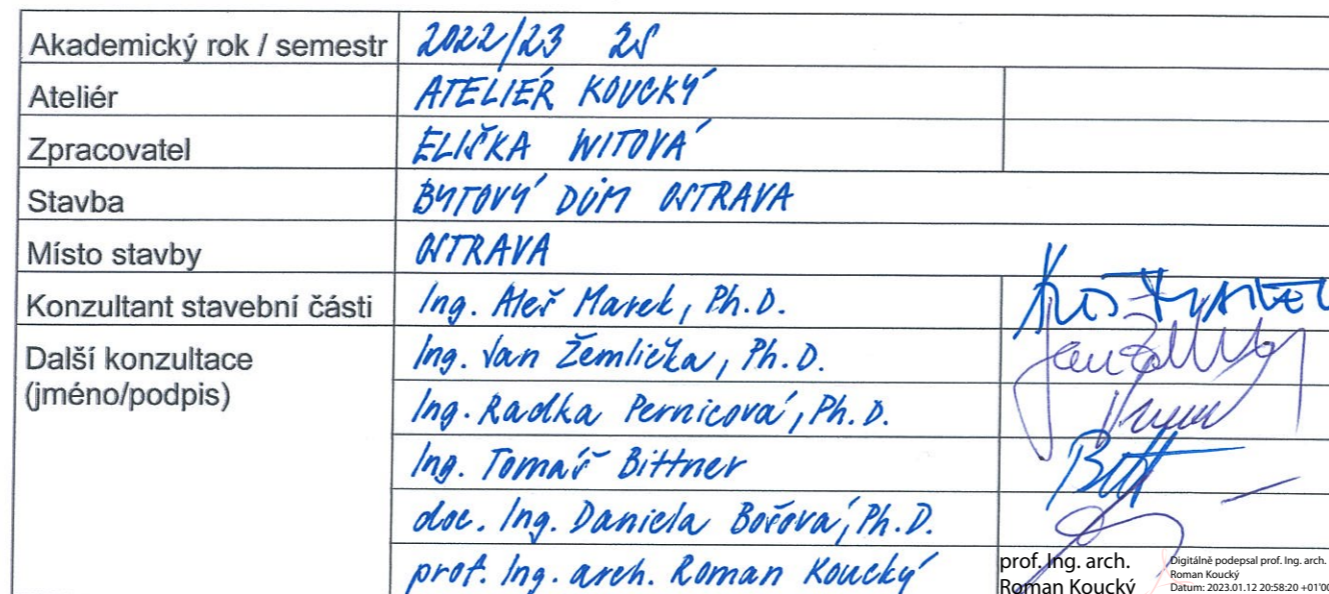 Akademický rok / semestr 2022/23 ZS
Ateliér ATELIÉR KOUCKÝ
Zpracovatel ELIŠKA WITOVÁ
Stavba BYTOVÝ DŮM OSTRAVA
Místo stavby OSTRAVA
Konzultant stavební části Ing. Aleš Marek, Ph.D.
Další konzultace Ing. Jan Žemlička, Ph.D.
(jméno/podpis)
Ing. Radka Pernicová, Ph.D.
Ing. Tomáš Bittner
doc. Ing. Daniela Bošová, Ph.D.
prof. Ing. arch. Roman Koucký prof. Ing. arch.
Roman Koucký
Digitálně podepsal prof. Ing. arch.
Roman Koucký
Datum: 2023.01.12 20:58:20 +01'00